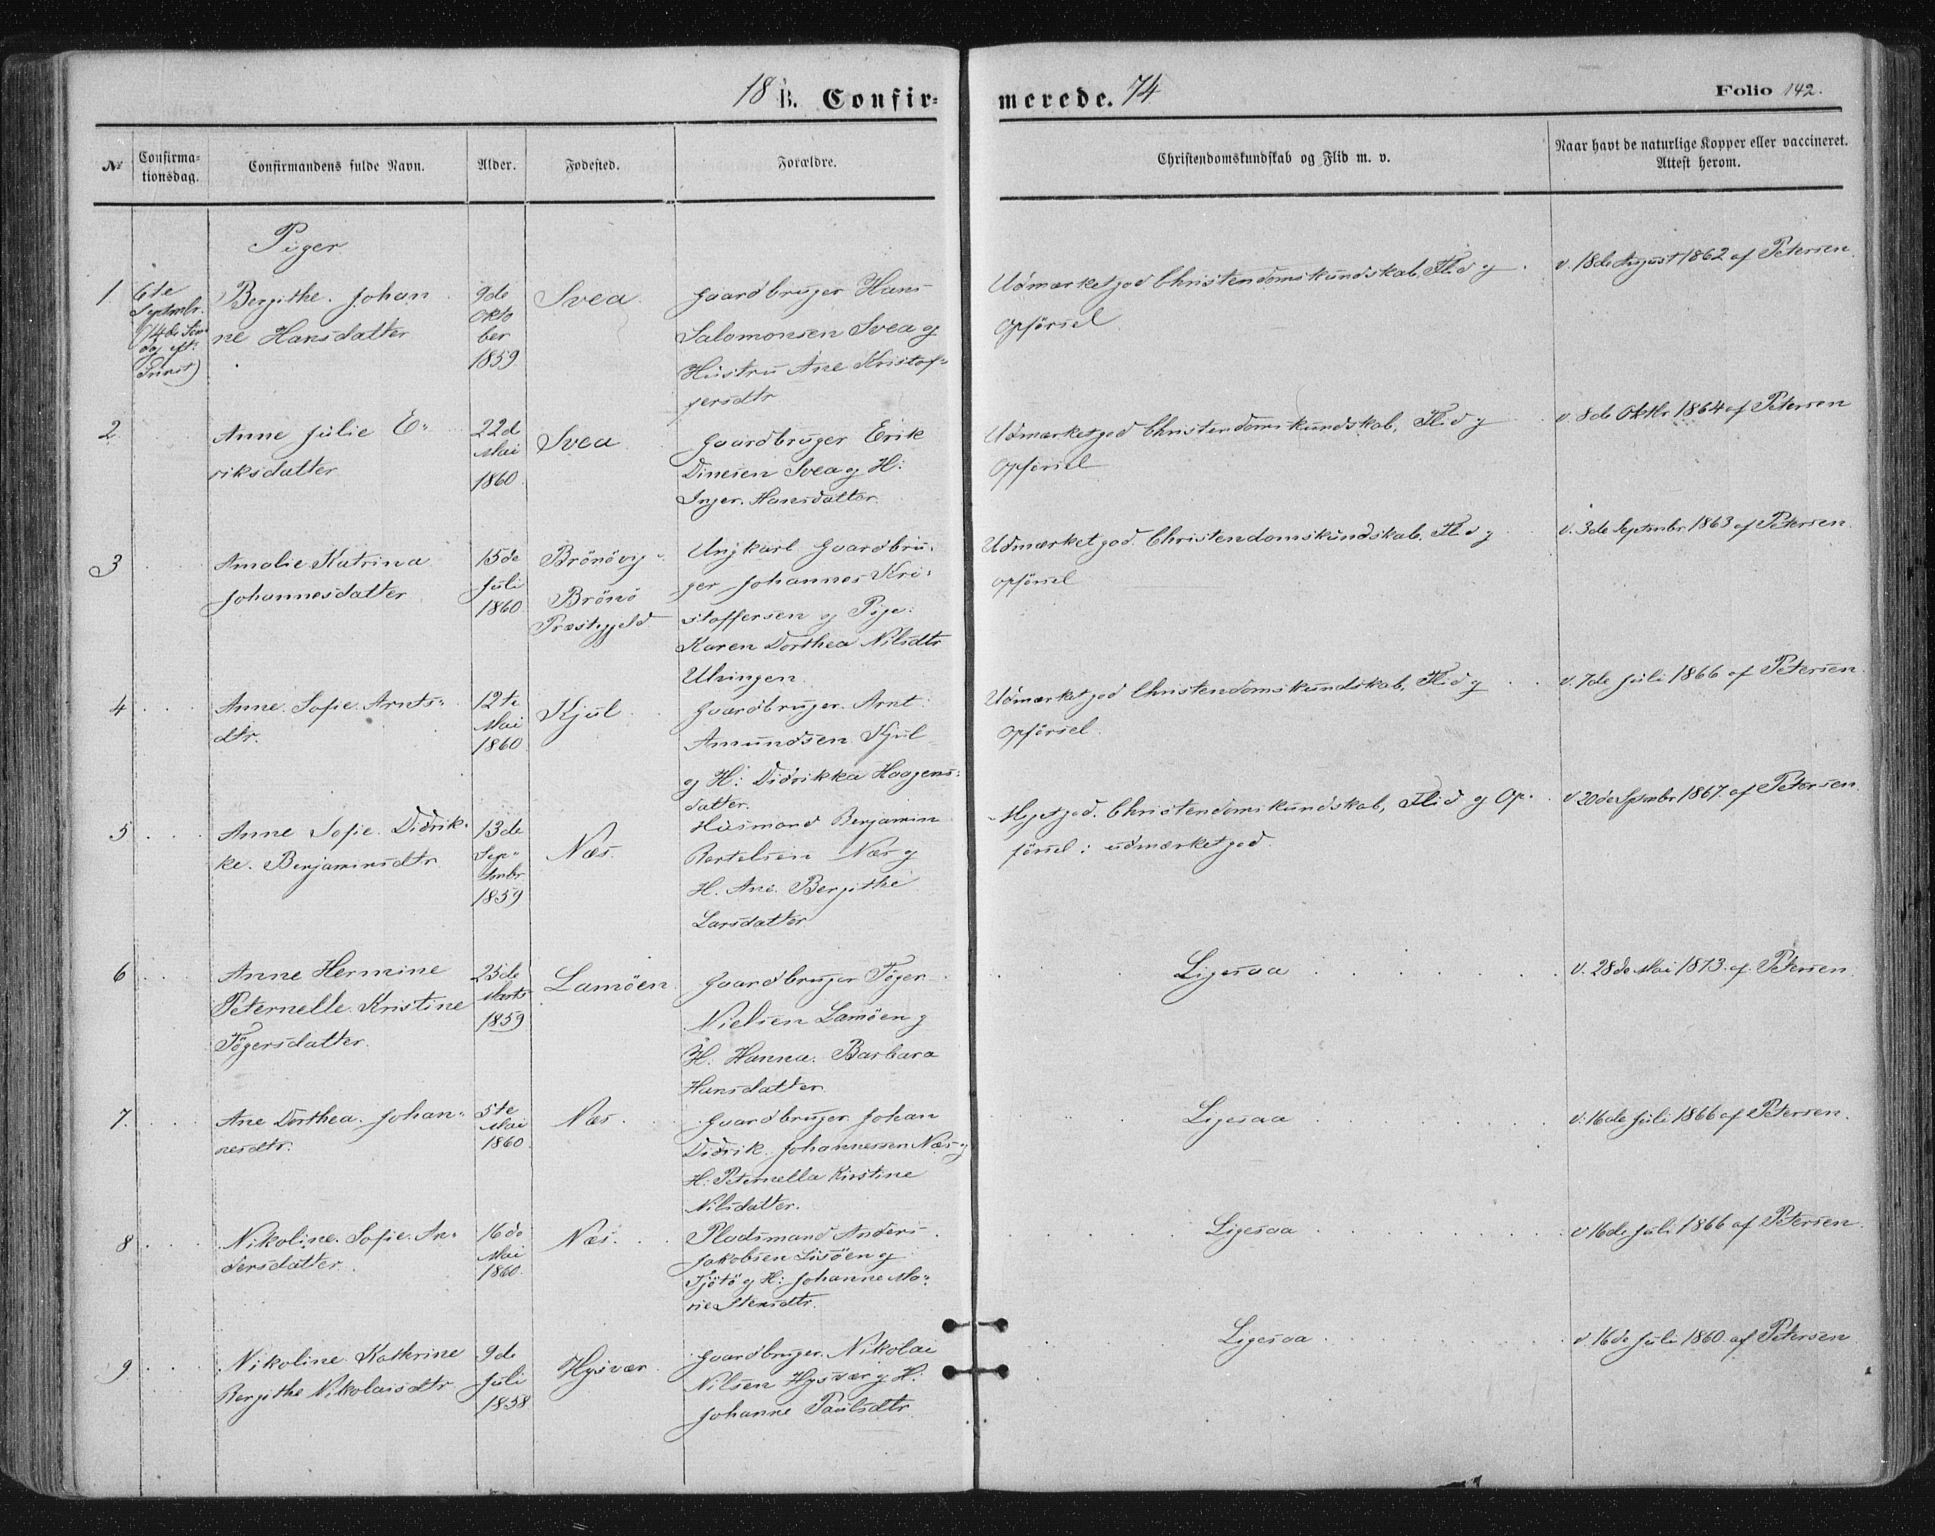 18 B. Confir= merede. 74
Folio 142.
№ Confirma=tionsdag. Confirmandens fulde Navn. Alder. Fødested. Forældre. Christendomskundskab og Flid m. v. Naar havt de naturlige Kopper eller vaccineret. Attest herom.
Piger
1 6te Septmbr. (14de Søndag eft: Trinit)
Bergithe Johan
ne Hansdatter
9de
Okto
ber
1859
Svea
Gaardbruger Hans
Salomonsen Svea og
Hustru Ane Kristof=
fersdtr
Udmærket god Christendomskundskab, Flid og
Opførsel
v. 18de August 1862 af Petersen.
2
Anne Julie E=
riksdatter
22de
Mai
1860
Svea
Gaardbruger Erik
Dinesen Svea og H:
Inger Hansdatter
Udmærket god Christendomskundskab, Flid og
Opførsel
v. 8de Oktbr 1864 af Petersen
3
Amalie Katrina
Johannesdatter
15de
Juli
1860
Brönövy=
Brönö
Præstegjeld
Ungkarl Gaardbru=
ger Johannes Kri=
stoffersen og Pige
Karen Dorthea Nilsdtr
Ulvingen
Udmærket god Christendomskundskab, Flid og
Opførsel
v. 3de Septmbr 1863 af Petersen.
4
Anne Sofie Arnts=
dtr.
12te
Mai
1860
Kjul
Gaardbruger Arnt
Amundsen Kjul
og H: Didrikka Haagens=
datter.
Udmærket god Christendomskundskab, Flid og
Opførsel.
v. 7de Juli 1866 af Petersen.
5
Anne Sofie Didrik=
ke Benjaminsdtr
13de
Sep=
tmbr
1859
Næs.
Husmand Benjamin
Bertelsen Næs og
H. Ane Bergithe
Larsdatter
Meget god Christendomskundskab, Flid og Op=
førsel: udmærket god.
v 20de Sptmbr 1867. af Petersen.
6
Anne Hermine
Peternelle Kristine
Tögersdatter.
25de
Marts
1859
Lamöen
Gaardbruger Töger
Nielsen Lamöen og
H. Hanna Barbara
Hansdatter
Ligesaa
v. 28de Mai 1873. af Petersen.
7.
Ane Dorthea Johan=
nesdtr.
5te
Mai
1860
Næs.
Gaardbruger Johan
Didrik Johannessen Næs og
H: Peternella Kirstine
Nilsdatter.
Ligesaa
v. 16de Juli 1866 af Petersen.
8
Nikoline Sofie An=
dersdatter.
16de
Mai
1860.
Næs.
Pladsmand Anders
Jakobsen
Tjötö og H: Johanne Ma=
rie Stensdtr.
Ligesaa
v 16de Juli 1866 af Petersen.
9
Nikoline Kathrine
Bergithe Nikolaisdtr
9de
Juli
1858
Hysvær
Gaardbruger Nikolai
Nilsen Hysvær og H:
Johanne Paulsdtr
Ligesaa
v 16de Juli 1860 af Petersen